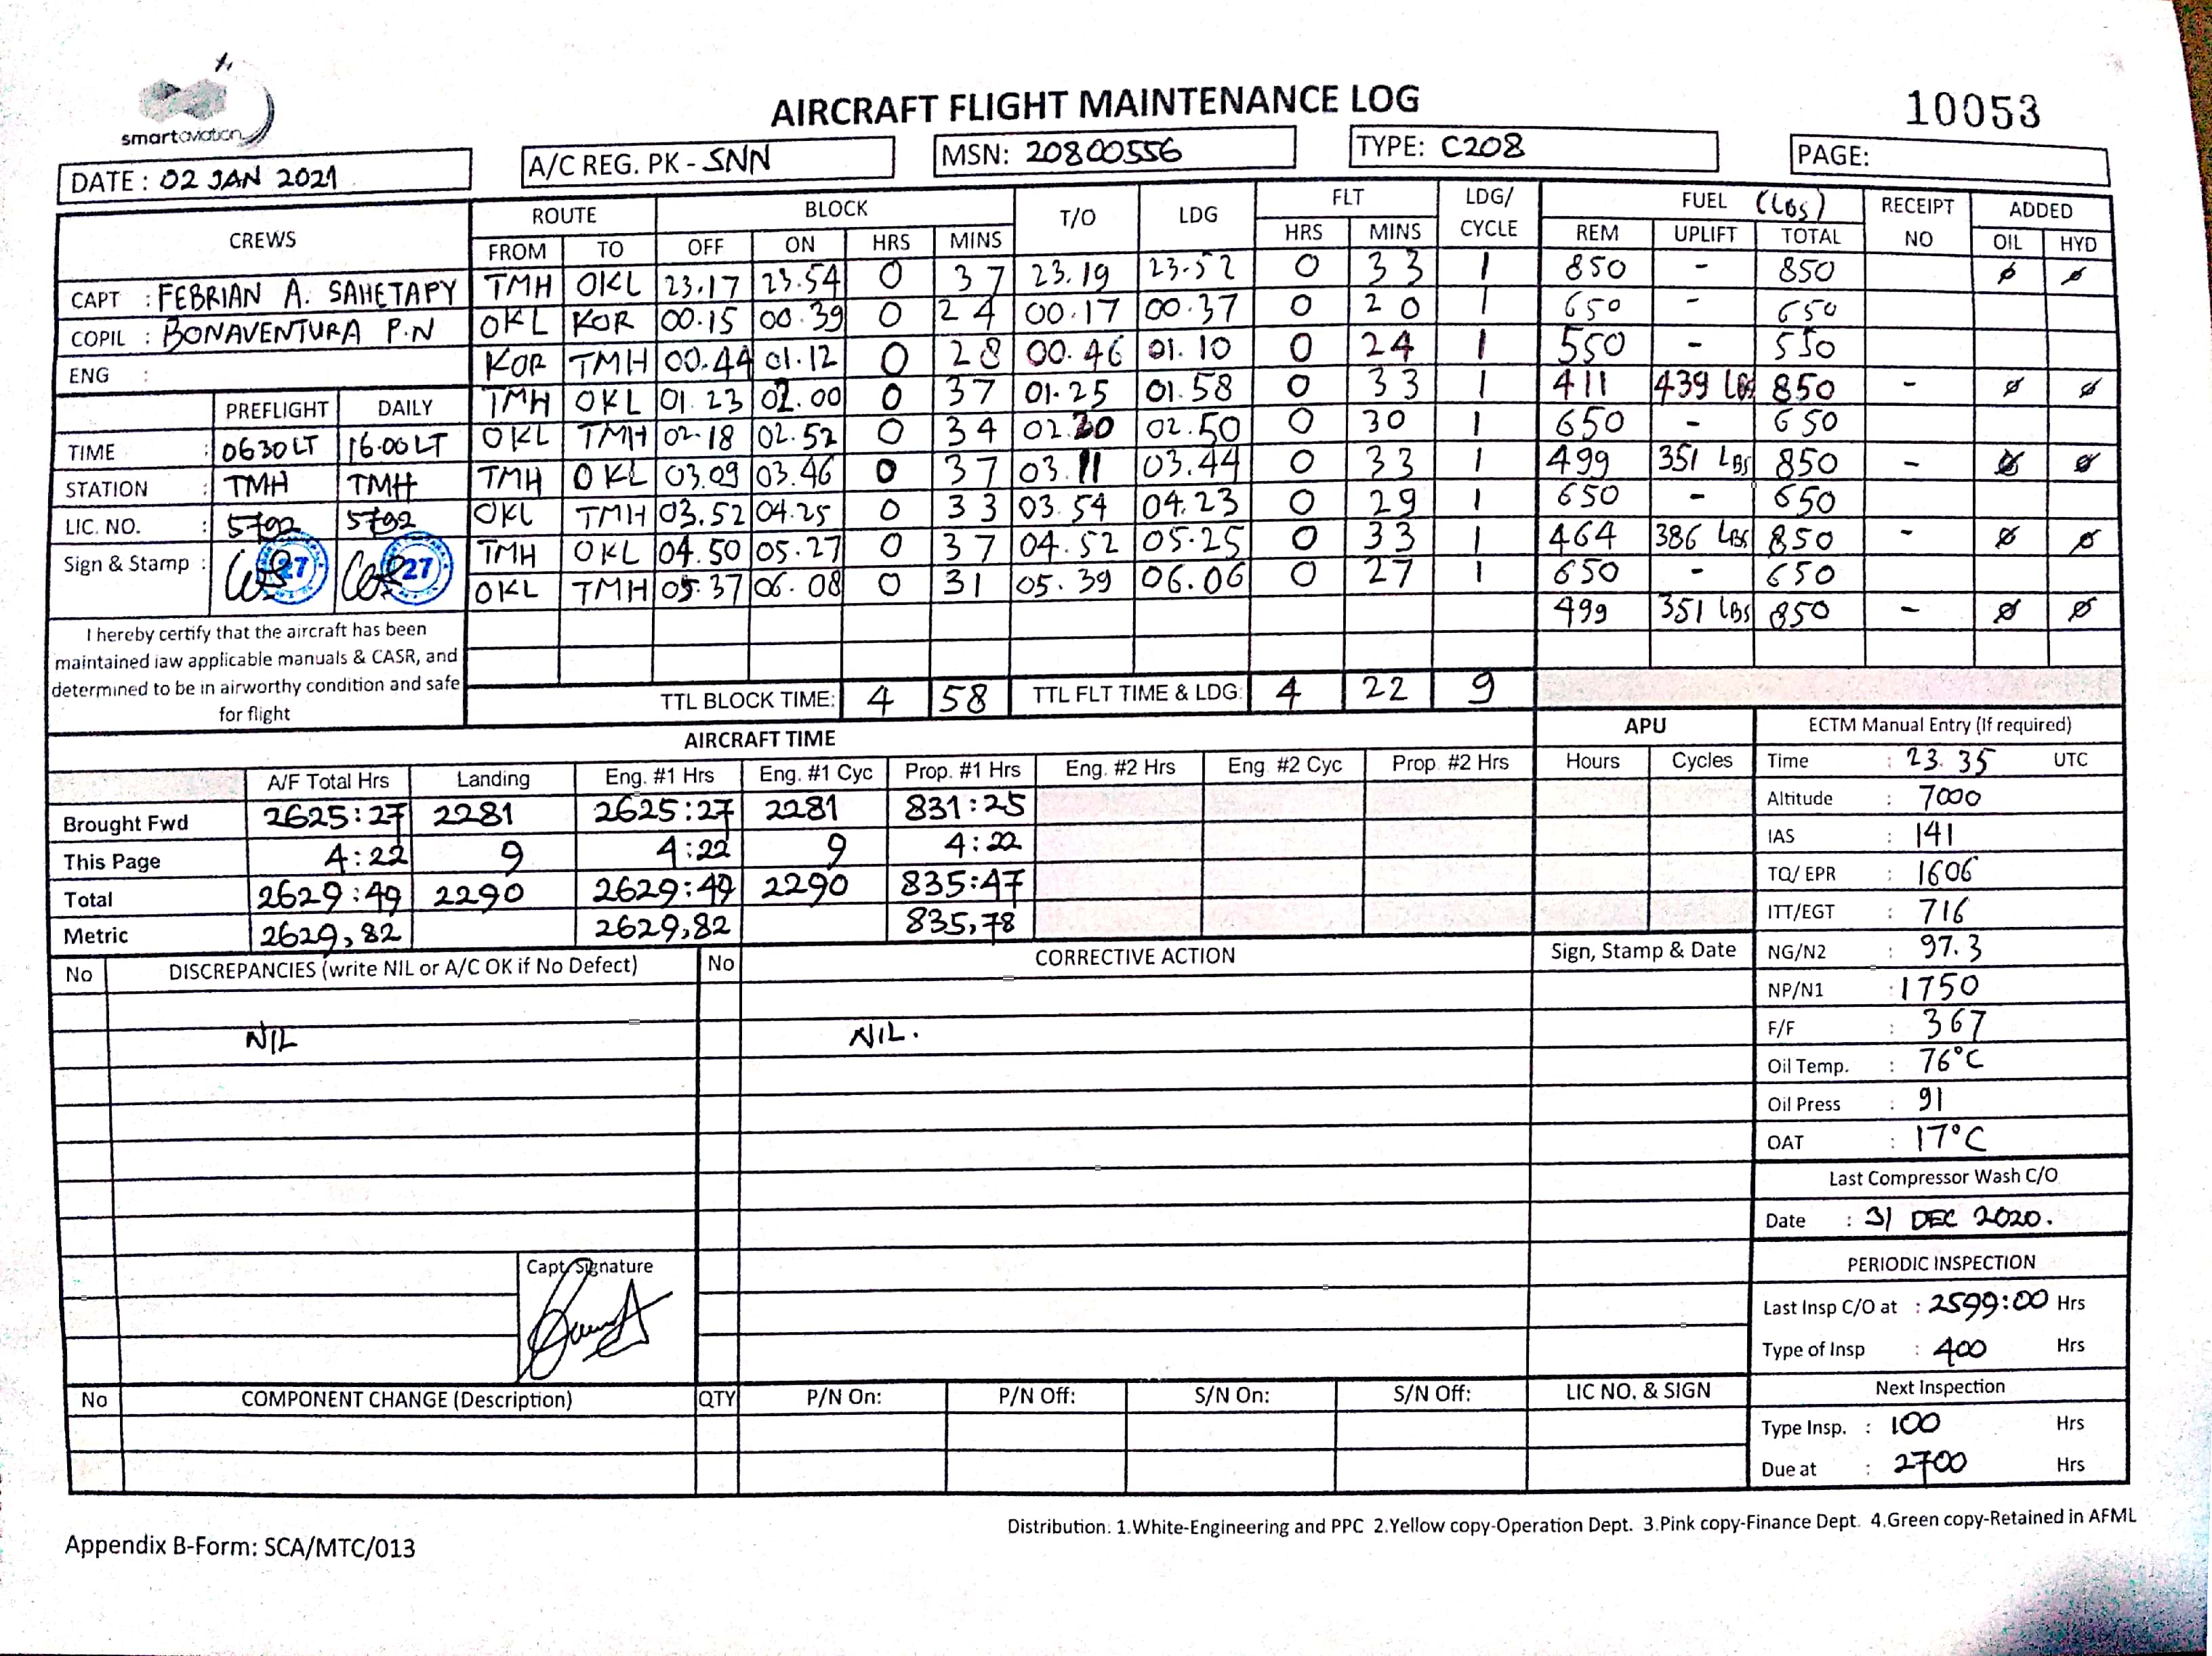 smartaviation
AIRCRAFT FLIGHT MAINTENANCE LOG
10053
DATE : 02 JAN 2021
A/C REG. PK - SNN
MSN: 20800556
TYPE: C208
PAGE:
CREWS
ROUTE BLOCK T/O LDG FLT LDG/ CYCLE FUEL (LBS) RECEIPT NO ADDED
FROM TO OFF ON HRS MINS HRS MINS REM UPLIFT TOTAL OIL HYD
CAPT : FEBRIAN A. SAHETAPY
COPIL : BONAVENTURA P.N
ENG :
TMH OKL 23.17 23.54 0 37 23.19 23.52 0 33 1 850 - 850 ∅ ∅
OKL KOR 00.15 00.39 0 24 00.17 00.37 0 20 1 650 - 650
KOR TMH 00.44 01.12 0 28 00.46 01.10 0 24 1 550 - 550
TMH OKL 01.23 02.00 0 37 01.25 01.58 0 33 1 411 439 LBS 850 - ∅ ∅
OKL TMH 02.18 02.52 0 34 02.20 02.50 0 30 1 650 - 650
TMH OKL 03.09 03.46 0 37 03.11 03.44 0 33 1 499 351 LBS 850 - ∅ ∅
OKL TMH 03.52 04.25 0 33 03.54 04.23 0 29 1 650 - 650
TMH OKL 04.50 05.27 0 37 04.52 05.25 0 33 1 464 386 LBS 850 - ∅ ∅
OKL TMH 05.37 06.08 0 31 05.39 06.06 0 27 1 650 - 650
499 351 LBS 850 - ∅ ∅
PREFLIGHT DAILY
TIME : 0630 LT 16.00 LT
STATION : TMH TMH
LIC. NO. : 5792 5792
Sign & Stamp : 27 27
I hereby certify that the aircraft has been
maintained iaw applicable manuals & CASR, and
determined to be in airworthy condition and safe
for flight
TTL BLOCK TIME: 4 58 TTL FLT TIME & LDG: 4 22 9
AIRCRAFT TIME
APU
A/F Total Hrs Landing Eng. #1 Hrs Eng. #1 Cyc Prop. #1 Hrs Eng. #2 Hrs Eng. #2 Cyc Prop. #2 Hrs Hours Cycles
Brought Fwd 2625:27 2281 2625:27 2281 831:25
This Page 4:22 9 4:22 9 4:22
Total 2629:49 2290 2629:49 2290 835:47
Metric 2629,82 2629,82 835,78
ECTM Manual Entry (If required)
Time : 23.35 UTC
Altitude : 7000
IAS : 141
TQ/ EPR : 1606
ITT/EGT : 716
NG/N2 : 97.3
NP/N1 : 1750
F/F : 367
Oil Temp. : 76°C
Oil Press : 91
OAT : 17°C
Last Compressor Wash C/O
Date : 31 DEC 2020.
PERIODIC INSPECTION
Last Insp C/O at : 2599:00 Hrs
Type of Insp : 400 Hrs
Next Inspection
Type Insp. : 100 Hrs
Due at : 2700 Hrs
No DISCREPANCIES (write NIL or A/C OK if No Defect) No CORRECTIVE ACTION Sign, Stamp & Date
NIL NIL.
Capt Signature
No COMPONENT CHANGE (Description) QTY P/N On: P/N Off: S/N On: S/N Off: LIC NO. & SIGN
Distribution: 1.White-Engineering and PPC 2.Yellow copy-Operation Dept. 3.Pink copy-Finance Dept. 4.Green copy-Retained in AFML
Appendix B-Form: SCA/MTC/013